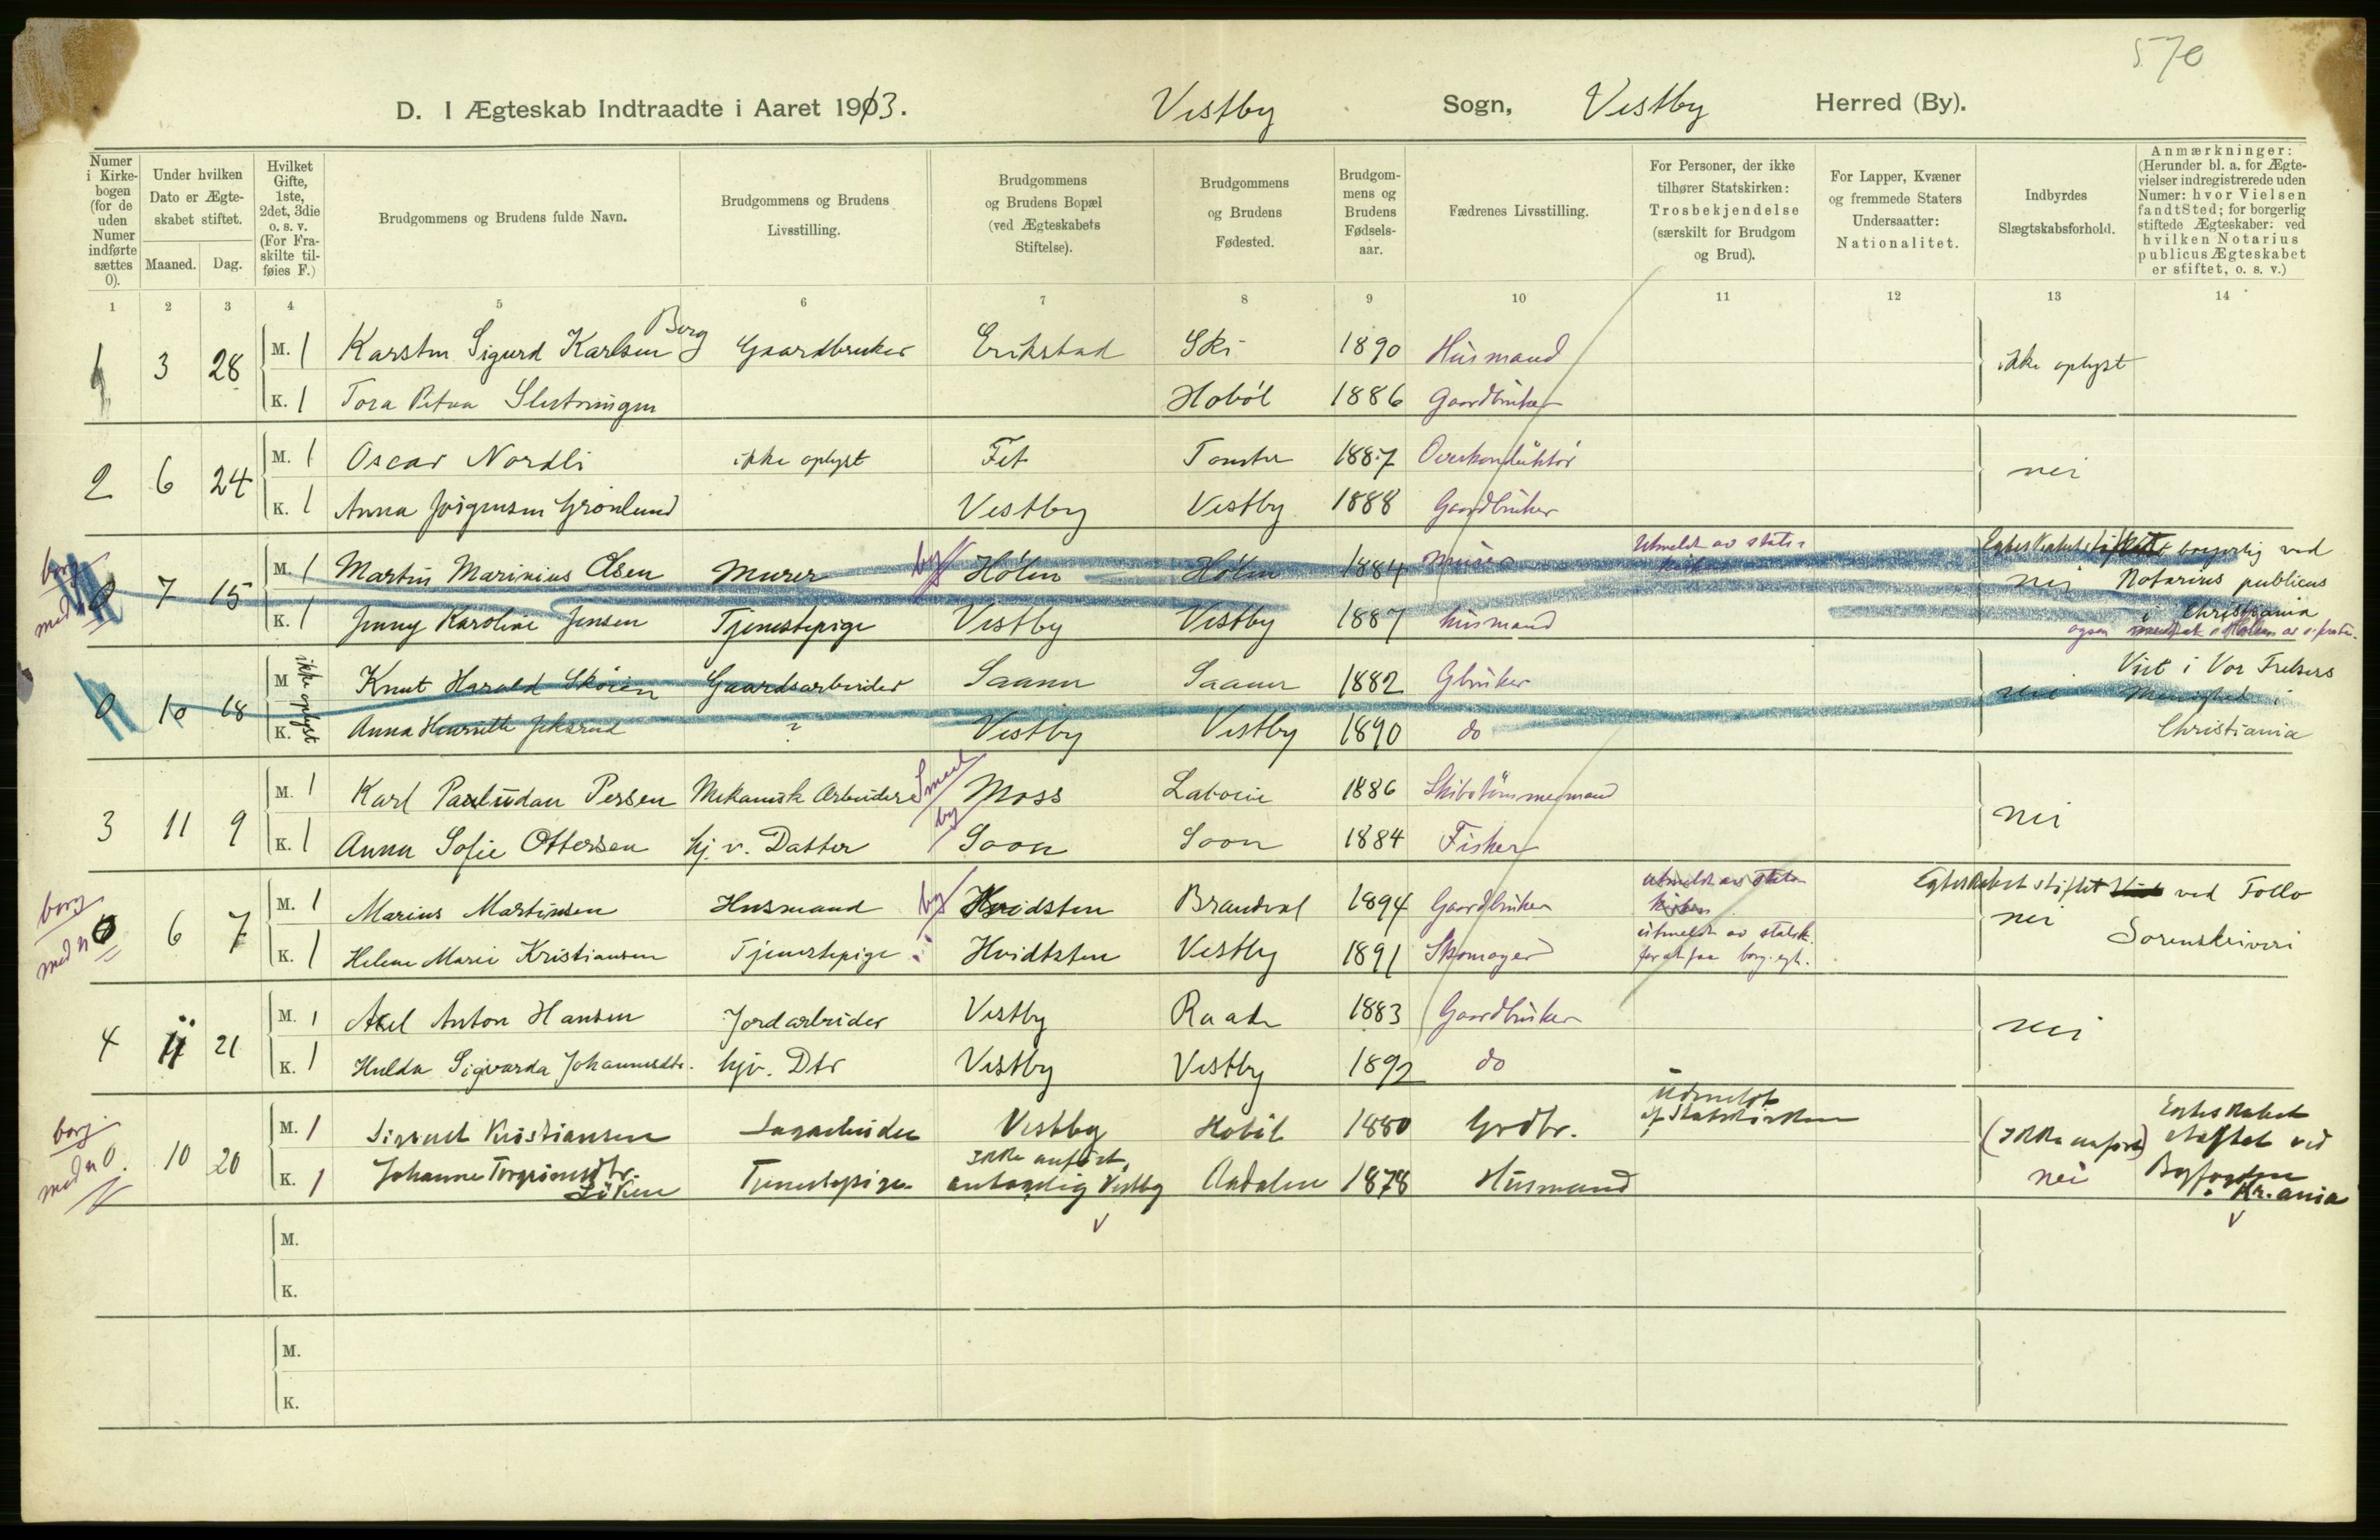 570
D. I Ægteskab Indtraadte i Aaret 1913. Vestby Sogn, Vestby Herred (By).
Numer i Kirke-bogen (for de uden Numer indførte sættes 0).
Under hvilken Dato er Ægte-skabet stiftet.
Maaned. Dag.
Hvilket Gifte, 1ste, 2det, 3die o. s. v. (For Fra-skilte til-føies F.)
Brudgommens og Brudens fulde Navn.
Brudgommens og Brudens Livsstilling.
Brudgommens og Brudens Bopæl (ved Ægteskabets Stiftelse).
Brudgommens og Brudens Fødested.
Brudgom-mens og Brudens Fødsels-aar.
Fædrenes Livsstilling.
For Personer, der ikke tilhører Statskirken: Trosbekjendelse (særskilt for Brudgom og Brud).
For Lapper, Kvæner og fremmede Staters Undersaatter: Nationalitet.
Indbyrdes Slægtskabsforhold.
Anmærkninger: (Herunder bl. a. for Ægte-vielser indregistrerede uden Numer: hvor Vielsen fandt Sted; for borgerlig stiftede Ægteskaber: ved hvilken Notarius publicus Ægteskabet er stiftet, o. s. v.)
1 2 3 4 5 6 7 8 9 10 11 12 13 14
1 3 28 M. 1 Karsten Sigurd Karlsen Berg Gaardbruker Erikstad Ski 1890 Husmand ikke oplyst
K. 1 Tora Petra Hobøl 1886 Gaardbruker
2 6 24 M. 1 Oscar Nordli ikke oplyst Fet 1887 Overkonduktør nei
K. 1 Anna Jørgensen Grønlund Vestby Vestby 1888 Gaardbruker
borg med n 0 7 15 M. 1 Martin Marinius Olsen Murer by Hølen Hølen 1884 murer Utmeldt av stats- nei borgerlig ved Notarius publicus
K. 1 Jenny Karoline Jensen Tjenestepige Vestby Vestby 1887 husmand i Christiania
0 10 18 M ikke oplyst Knut Harald Skøien Gaardsarbeider Saaner Saaner 1882 Gbruker nei Viet i Vor Frelsers Menighed i
K. Anna Henriette ? Vestby Vestby 1890 do Christiania
3 11 9 M. 1 Karl Paulüdan Persen Mekanisk Arbeider Smed by Moss 1886 Skibstømmermand nei
K. 1 Anna Sofie Ottersen hj. v. Datter Soon Soon 1884 Fisker
borg med n 0 6 7 M. 1 Marius Martinsen Husmand by Hvidsten Brandval 1894 Gaardbruker utmeldt av stats- kirken nei Egteskabet stiftet ved Follo
K. 1 Helene Marie Kristiansen Tjenestepige Hvidtsten Vestby 1891 Skomager utmeldt av statsk. for at faa borg. egt. Sorenskriveri
4 11 21 M. 1 Axel Anton Hansen Jordarbeider Vestby Raade 1883 Gaardbruker nei
K. 1 Hulda Sigvarda Johannesdtr. hjv. Dtr Vestby Vestby 1892 do
borg med n 0. 10 20 M. 1 Kristiansen Sagarbeider Vestby Hobøl 1880 Grdbr. Udmeldt af Statskirken (ikke anført) nei Egteskabet stiftet ved
K. 1 Johanne Torgrimsdtr. Løken Tjenestepige ikke anført, antagelig Vestby Aadalen 1878 Husmand Byfogden Kr.ania
M.
K.
M.
K.